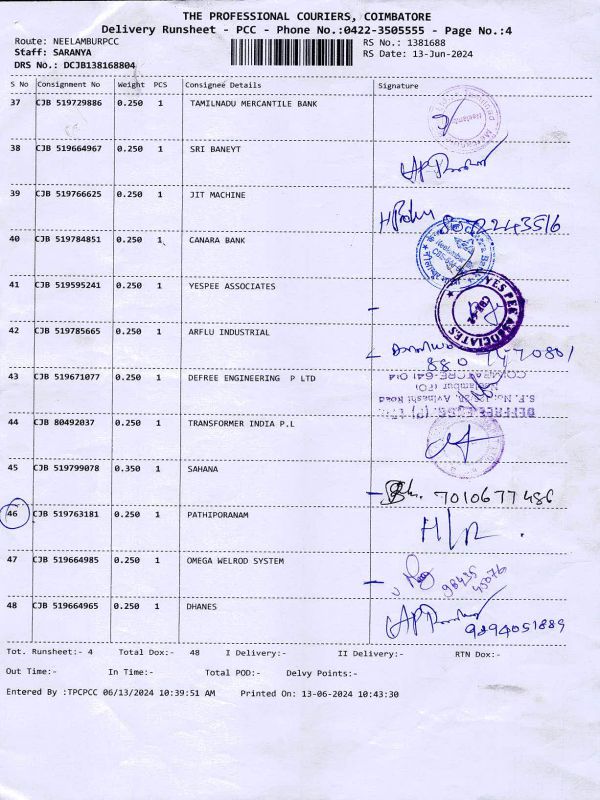 THE PROFESSIONAL COURIERS, COIMBATORE
Delivery Runsheet - PCC - Phone No.:0422-3505555 - Page No.:4
Route: NEELAMBURPCC RS No.: 1381688
Staff: SARANYA RS Date: 13-Jun-2024
DRS No.: DCJB138168804
S No Consignment No Weight PCS Consignee Details Signature
37 CJB 519729886 0.250 1 TAMILNADU MERCANTILE BANK
38 CJB 519664967 0.250 1 SRI BANEYT
39 CJB 519766625 0.250 1 JIT MACHINE
40 CJB 519784851 0.250 1 CANARA BANK
41 CJB 519595241 0.250 1 YESPEE ASSOCIATES
YES PEE ASSOCIATES
42 CJB 519785665 0.250 1 ARFLU INDUSTRIAL
43 CJB 519671077 0.250 1 DEFREE ENGINEERING P LTD
COIMBATORE-641 014
Neelambur (PO)
Avinashi Road
44 CJB 80492037 0.250 1 TRANSFORMER INDIA P.L
45 CJB 519799078 0.350 1 SAHANA 7010677486
46 CJB 519763181 0.250 1 PATHIPORANAM
47 CJB 519664985 0.250 1 OMEGA WELROD SYSTEM 98435 45076
48 CJB 519664965 0.250 1 DHANES 9894051889
Tot. Runsheet:- 4 Total Dox:- 48 I Delivery:- II Delivery:- RTN Dox:-
Out Time:- In Time:- Total POD:- Delvy Points:-
Entered By :TPCPCC 06/13/2024 10:39:51 AM Printed On: 13-06-2024 10:43:30